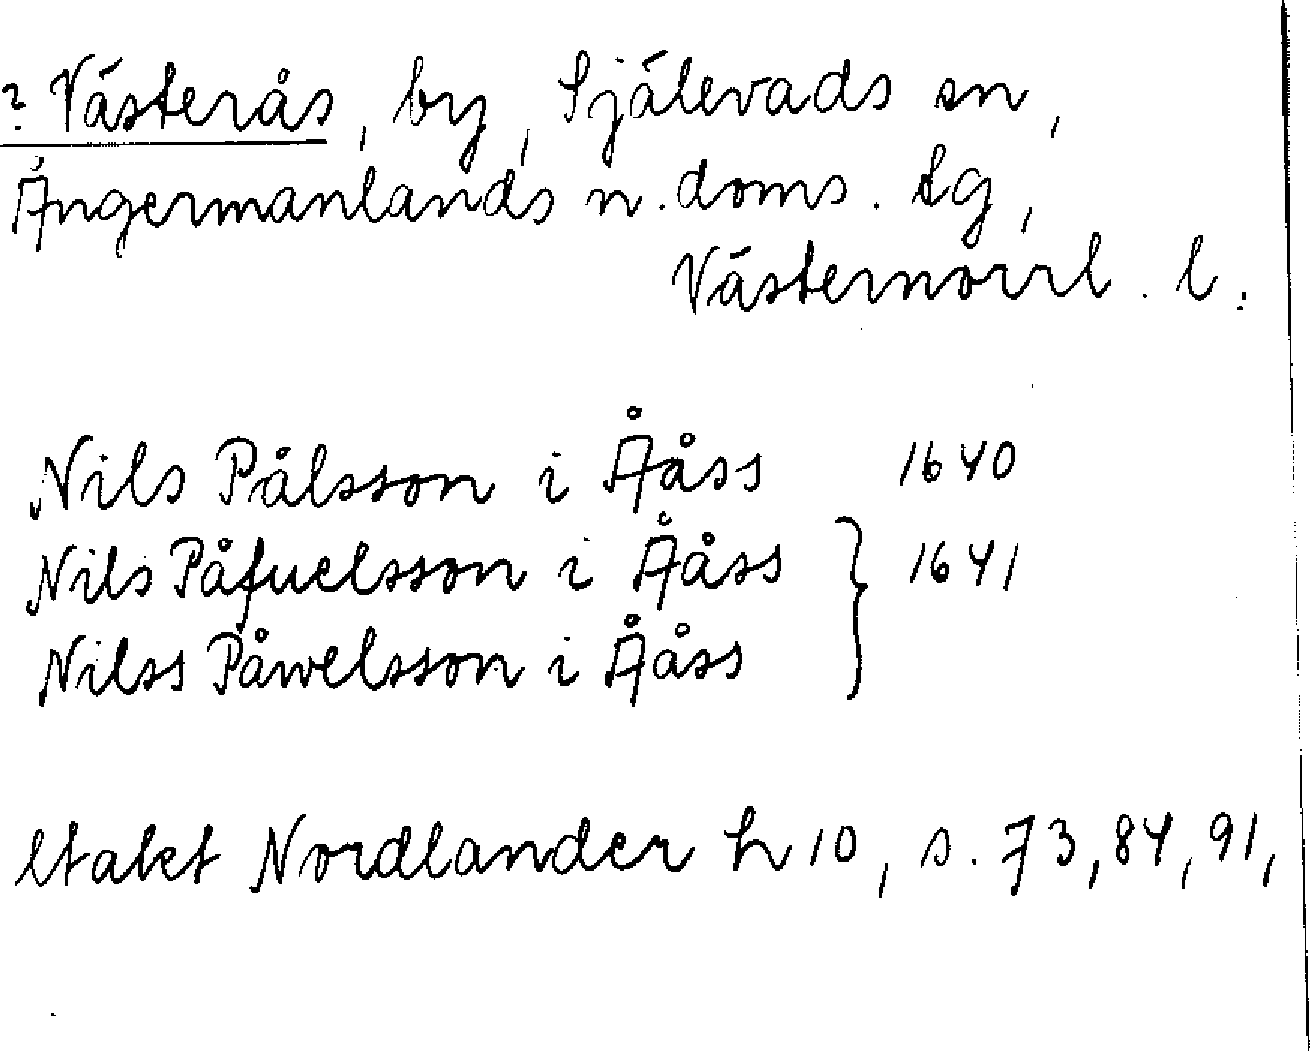 ? Västerås, by, Själevads sn,
Ångermanlands n. doms. tg,
Västernorrl. l.
Nils Pålsson i Ååss 1640
Nils Påfuelsson i Ååss } 1641
Nilss Påwelsson i Ååss
Utakt Nordlander h 10, s. 73, 84, 91,